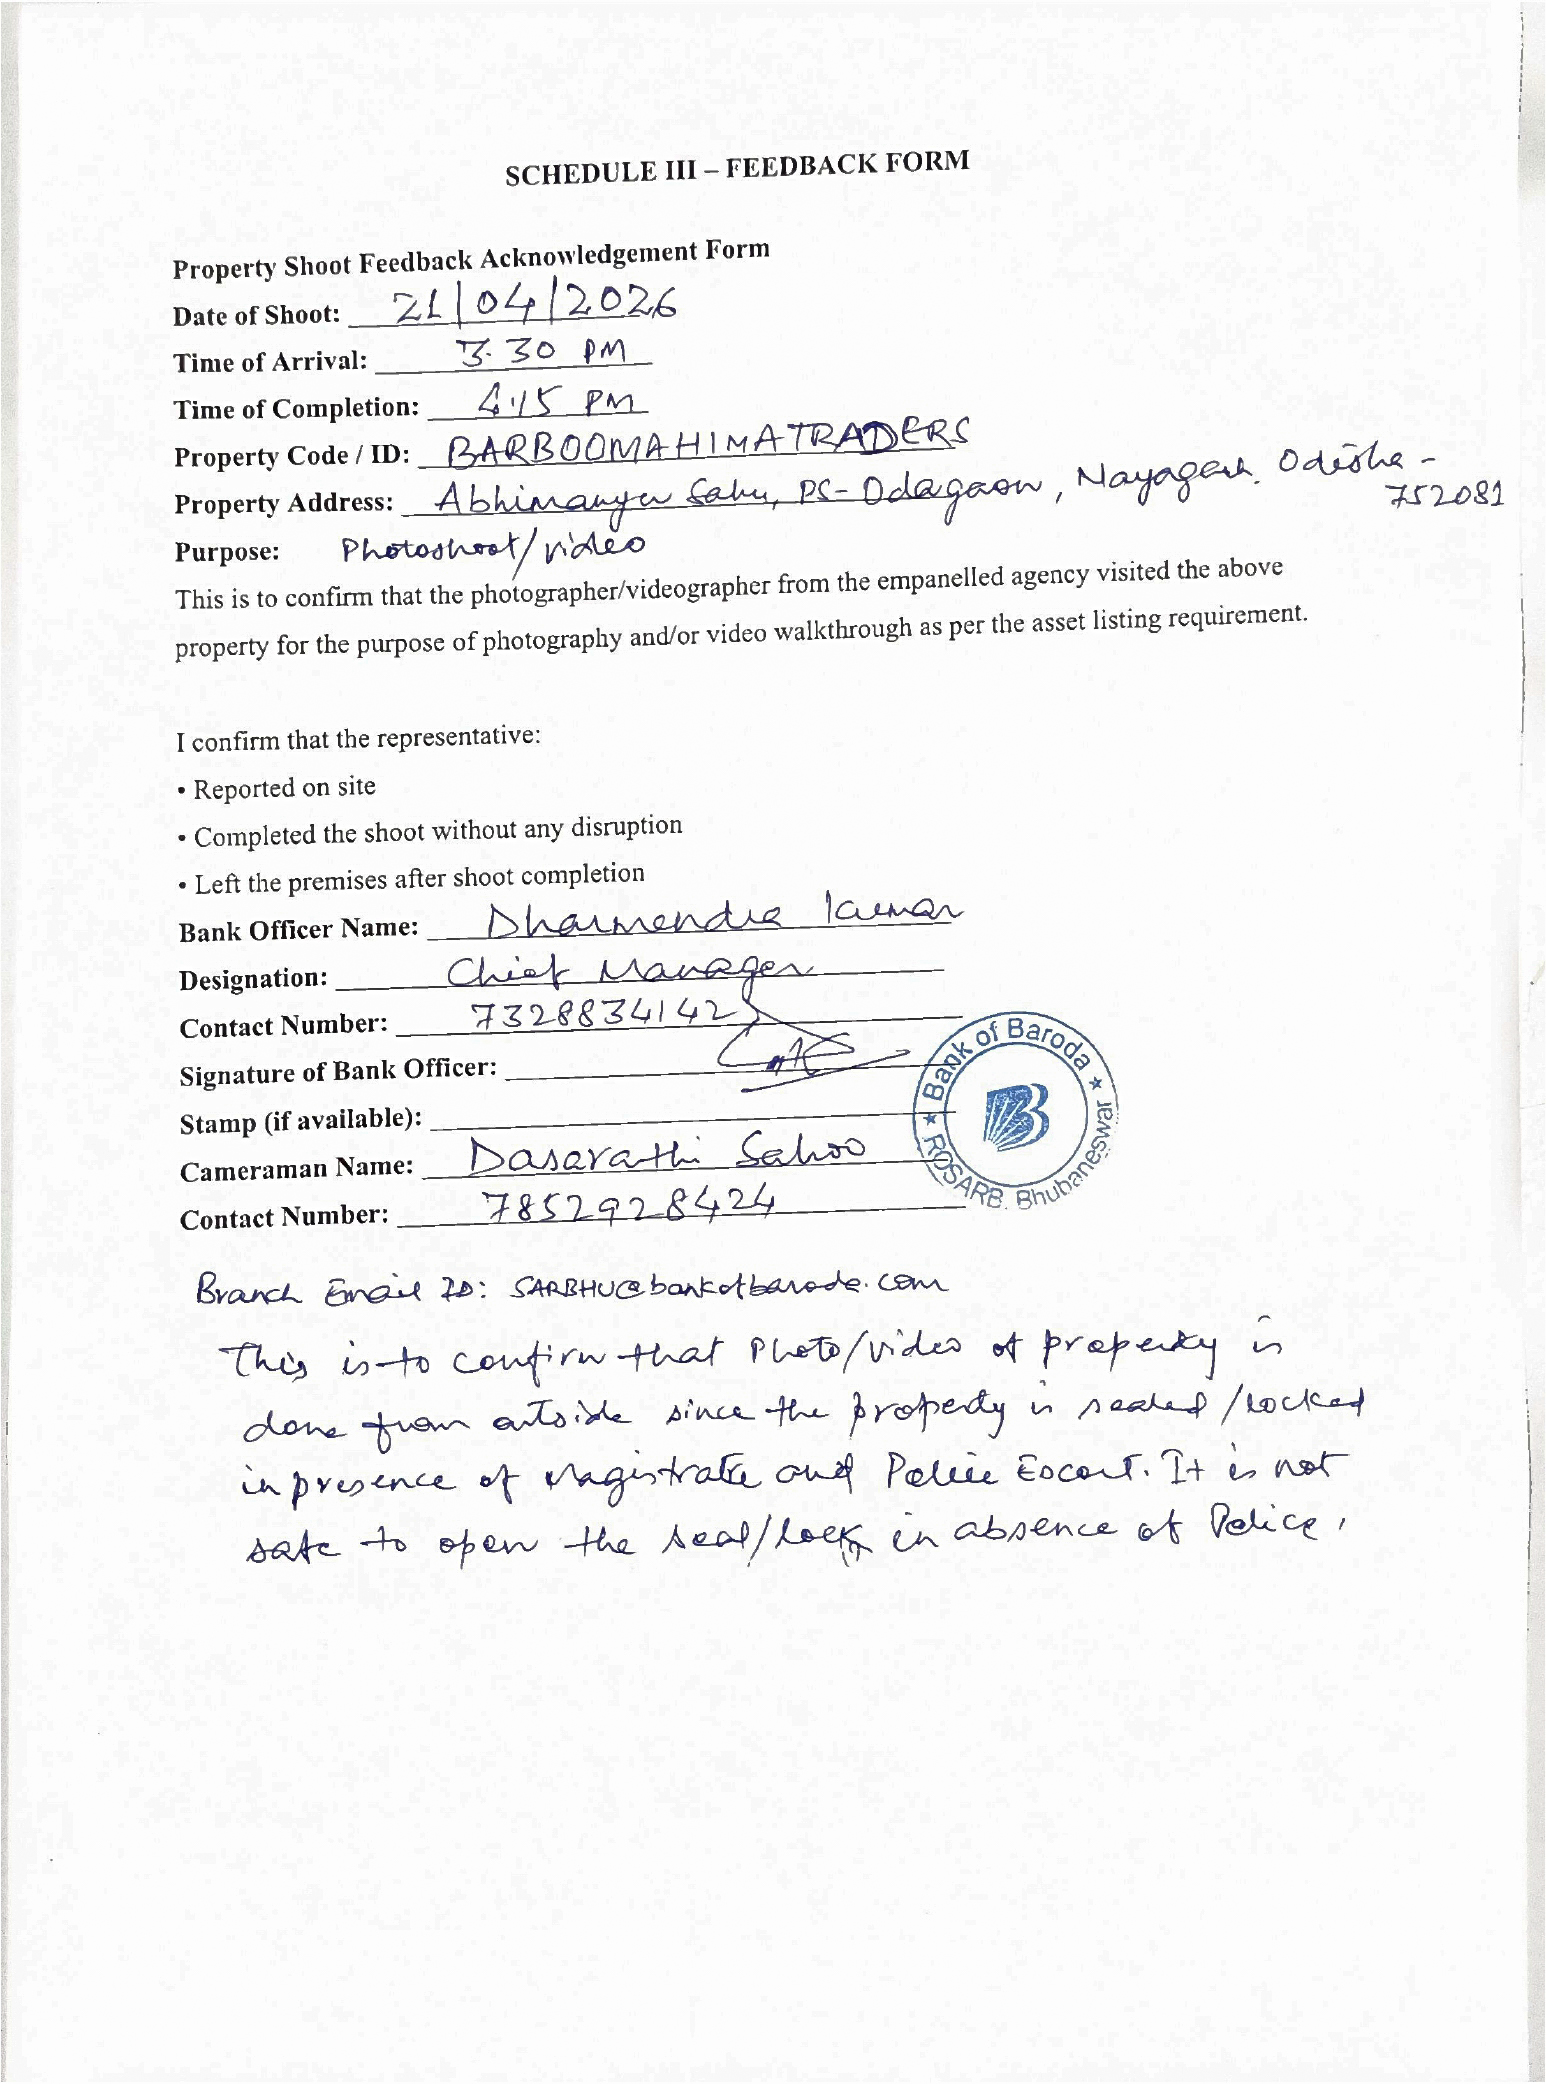 SCHEDULE III – FEEDBACK FORM
Property Shoot Feedback Acknowledgement Form
Date of Shoot: 21/04/2026
Time of Arrival: 3.30 PM
Time of Completion: 4.15 PM
Property Code / ID: BARBOOMAHIMATRADERS
Property Address: Abhimanyu Sahu, PS- Odagaon, Nayagarh. Odisha -
752081
Purpose: Photoshoot/video
This is to confirm that the photographer/videographer from the empanelled agency visited the above
property for the purpose of photography and/or video walkthrough as per the asset listing requirement.
I confirm that the representative:
• Reported on site
• Completed the shoot without any disruption
• Left the premises after shoot completion
Bank Officer Name: Dharmendra Kumar
Designation: Chief Manager
Contact Number: 7328834142
Signature of Bank Officer:
Stamp (if available):
Bank of Baroda ★ ROSARB. Bhubaneswar ★
Cameraman Name: Dasarathi Sahoo
Contact Number: 7852928424
Branch Email ID: SARBHU@bankofbaroda.com
This is to confirm that Photo/video of property is
done from outside since the property is sealed/locked
in presence of Magistrate and Police Escort. It is not
safe to open the seal/lock in absence of Police.